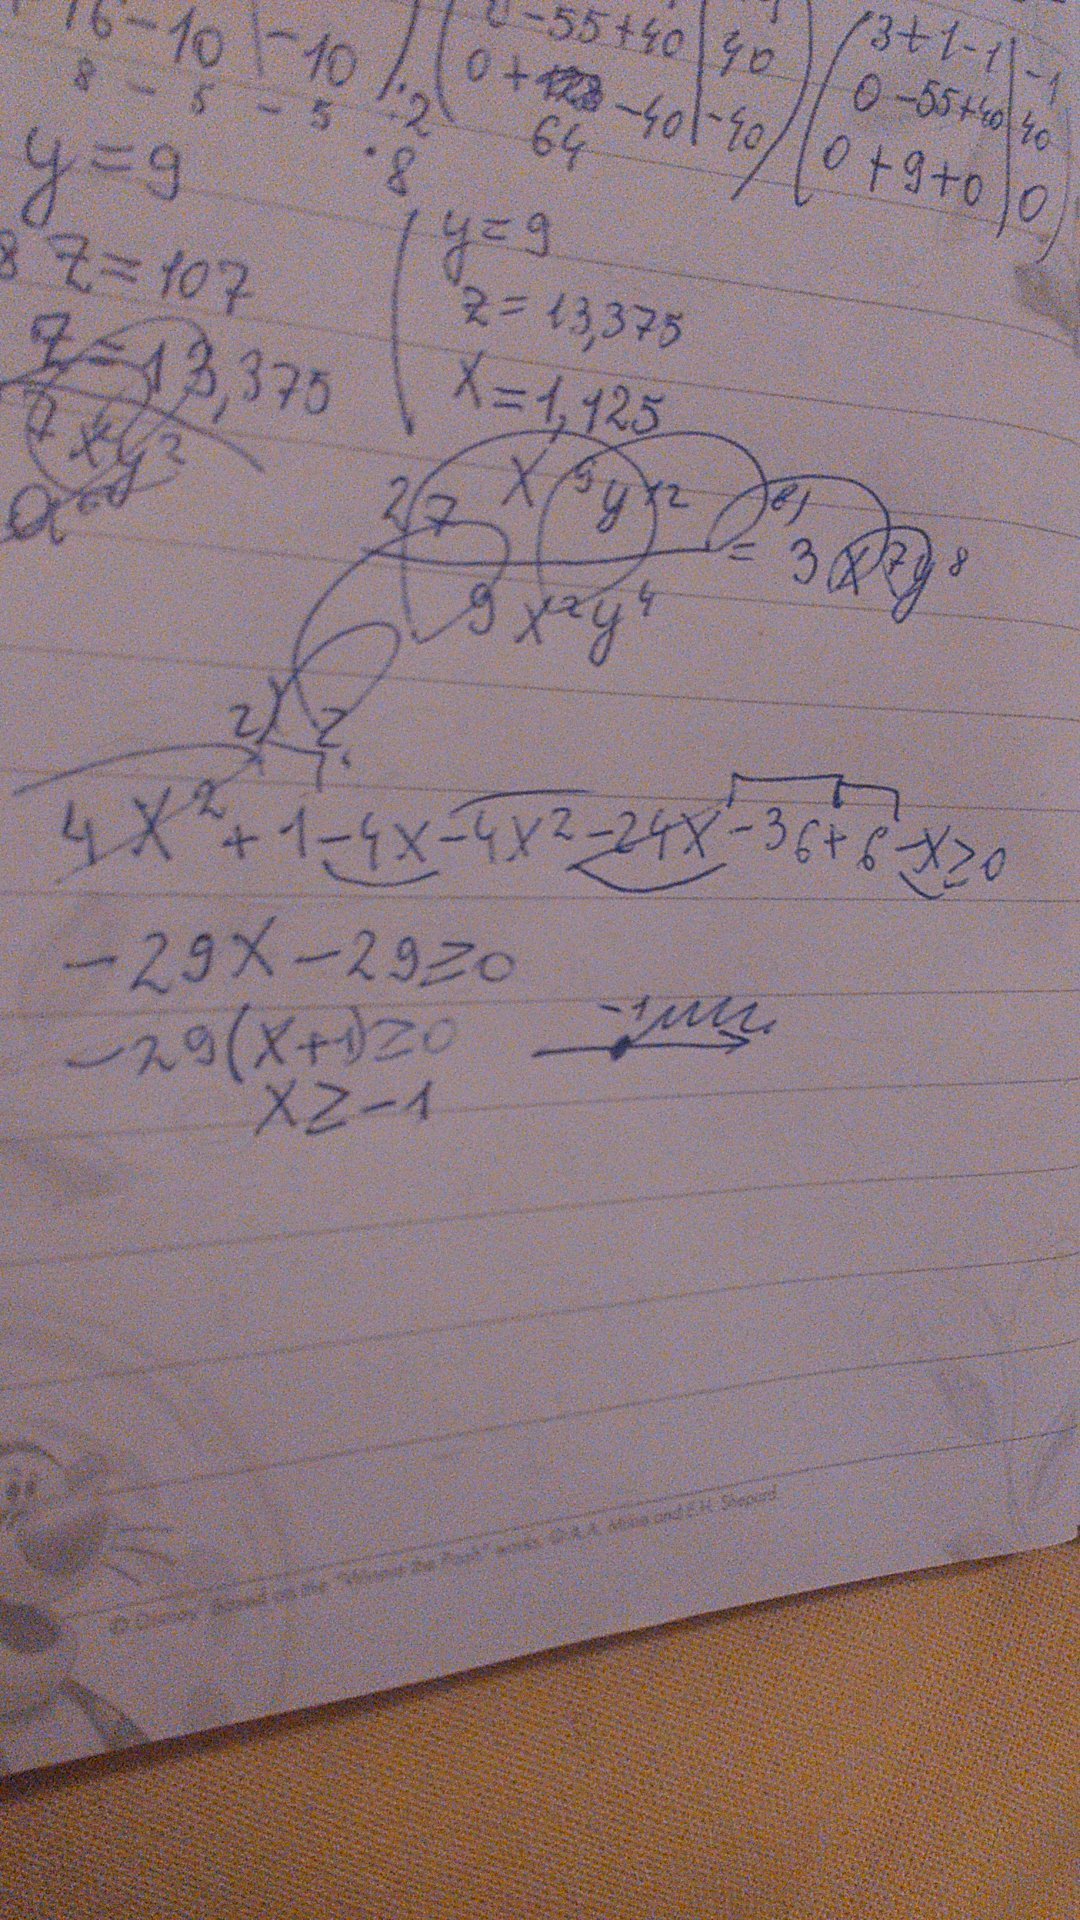 16-10 | -10
8 - 5 - 5 ·2
·8
-55+40 | 40
0+ -40 | -40
64
3+1-1 | -1
0-55+40 | 40
0+9+0 | 0
y=9
8 z=107
z=13,375
y=9
z=13,375
x=1,125
27 x⁹y¹² / 9x²y⁴ = 3x⁷y⁸
4x²+1-4x-4x²-24x-36+6-x≥0
-29x-29≥0
-29(x+1)≥0
-1
x≥-1
© Disney. Based on the "Winnie the Pooh" works, © A.A. Milne and E.H. Shepard